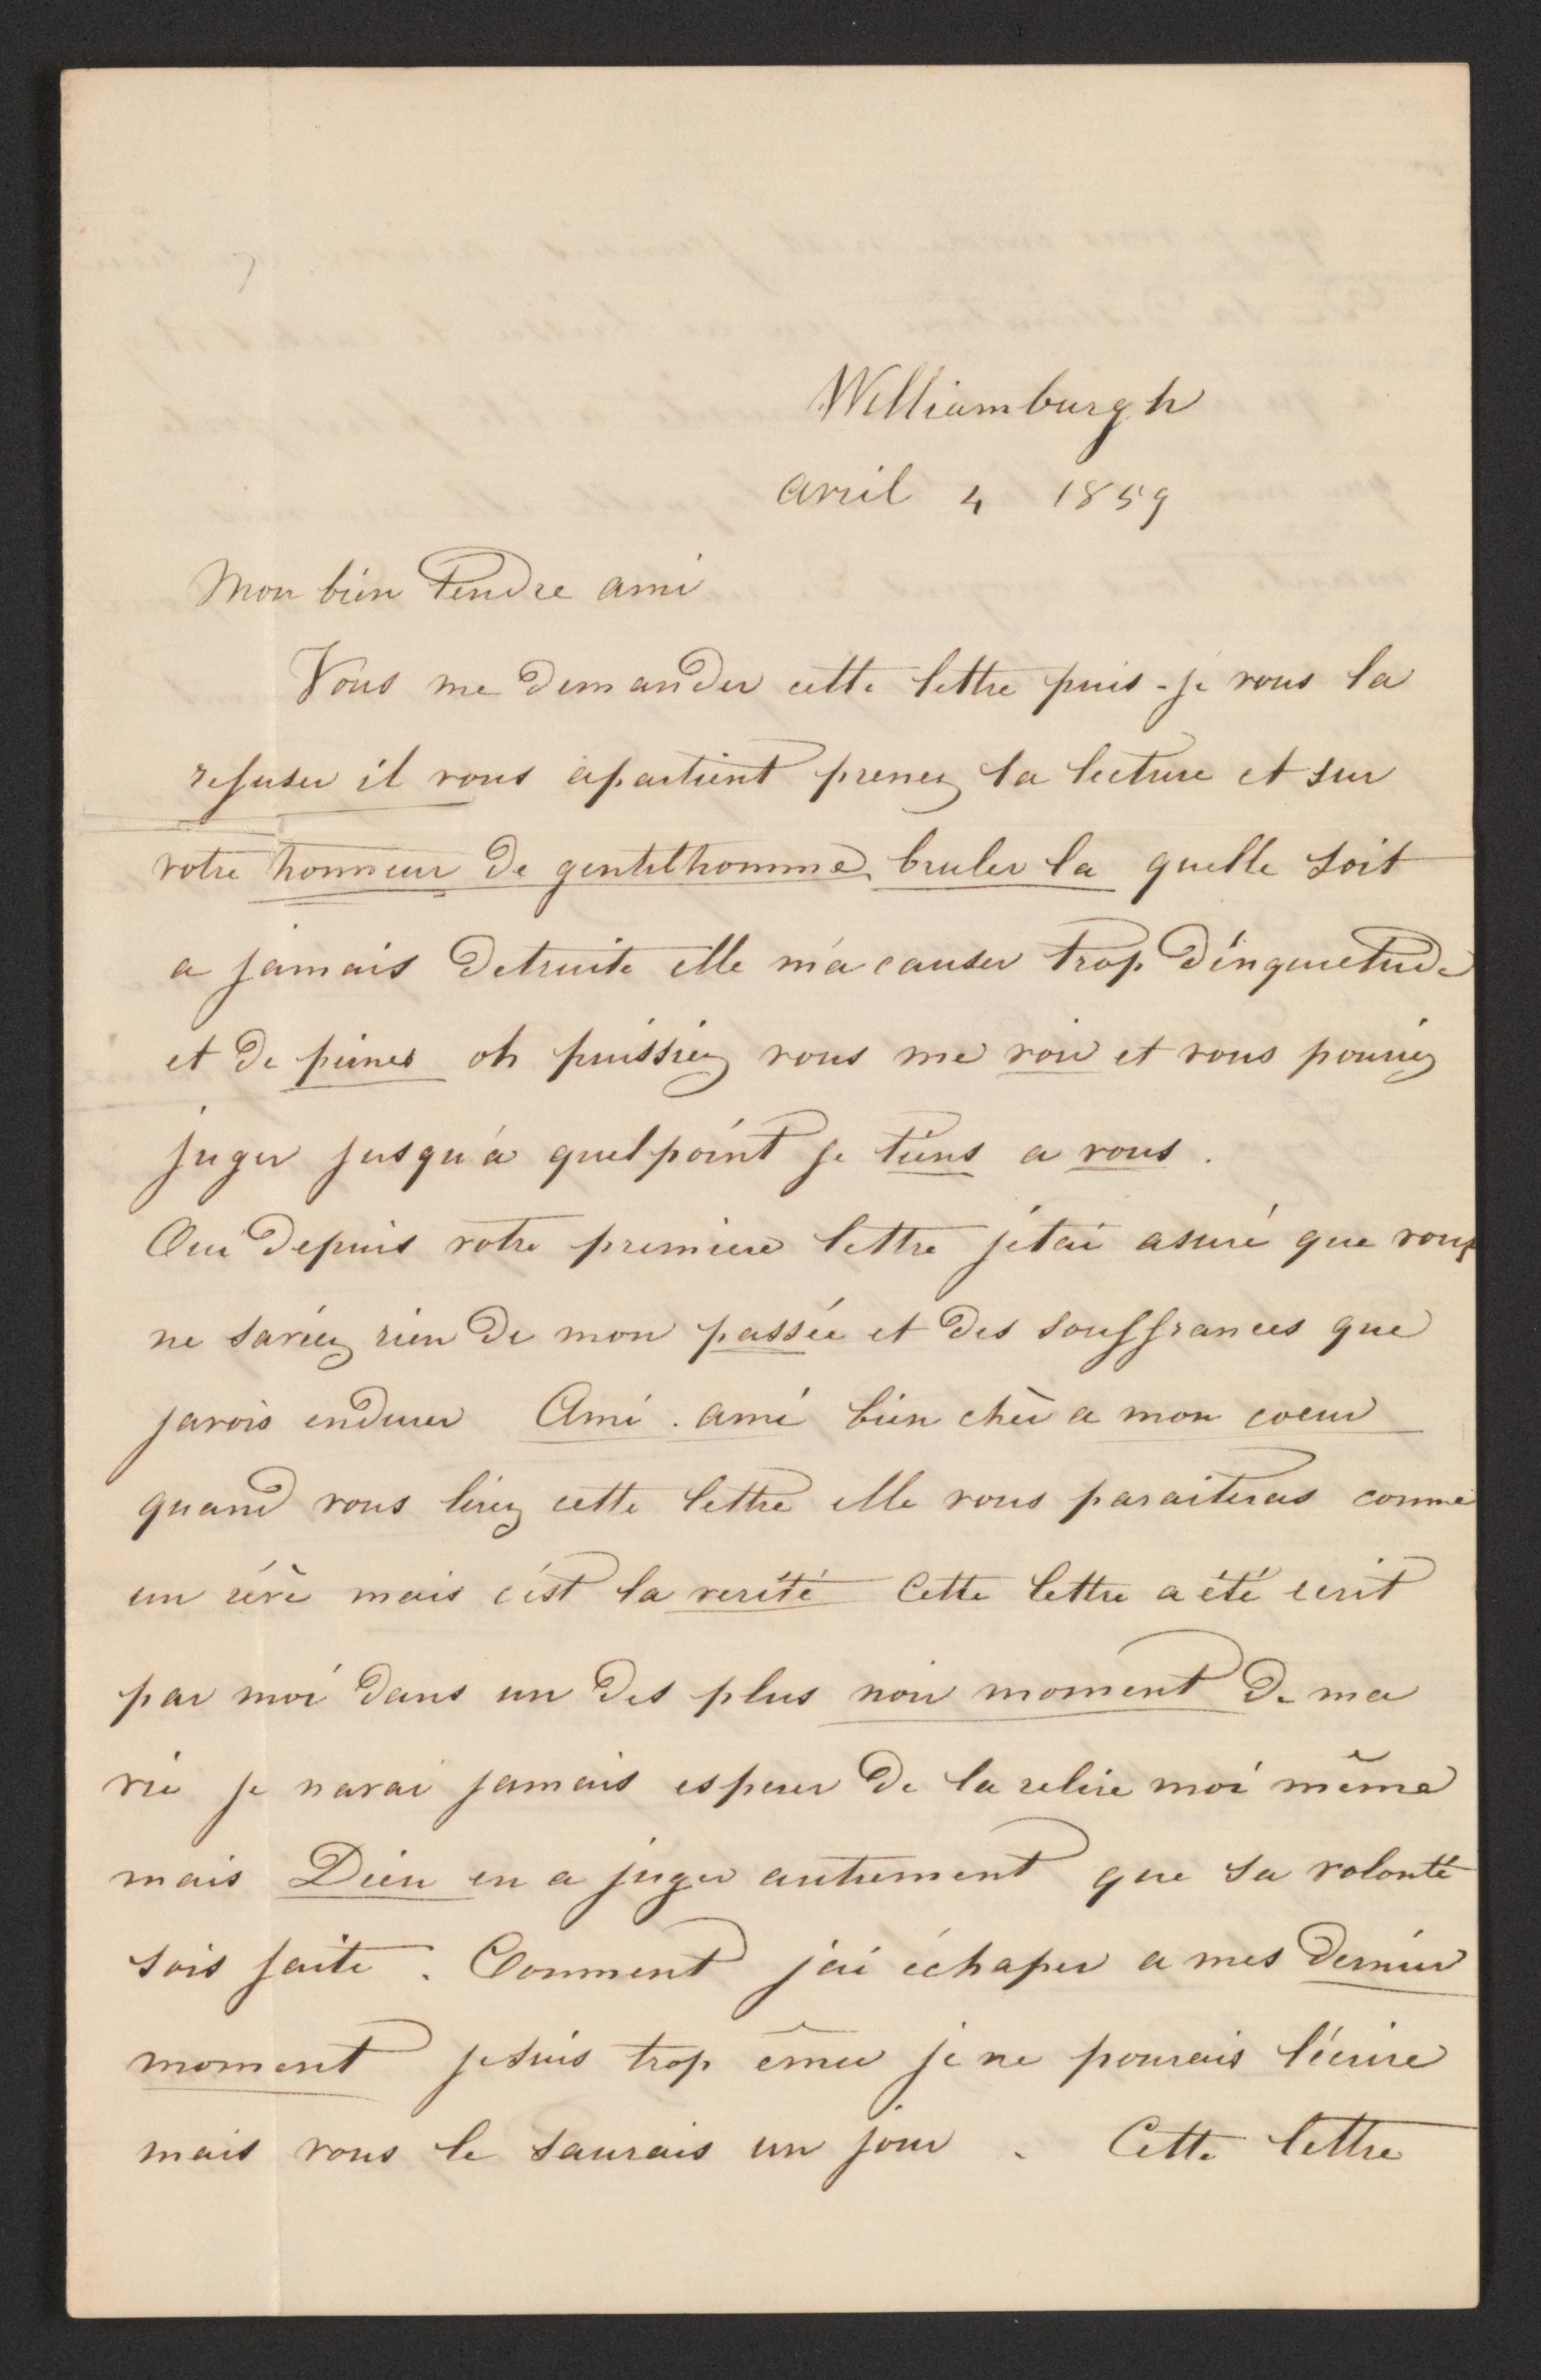 Williamburgh
avril 4 1859
Mon bien tendre ami
Vous me demander cette lettre puis-je vous la
refuser il vous apartient prenez la lecture et sur
votre honneur de gentilhomme, bruler la quelle soit
a jamais detruite elle m'a causer trop d'inquietude
et de peines oh puissiez vous me voir et vous pouriez
juger jusqu'a quel point je tiens a vous.
Oui depuis votre premiere lettre j'etai asuré que vous
ne saviez rien de mon passée et des souffrances que
javois endurer Ami. ami bien chèr a mon coeur
quand vous lirez cette lettre elle vous paraiteras comme
un rêve mais c'est la verité Cette lettre a été ecrit
par moi dans un des plus noir moment de ma
vie je navai jamais esperer de la relire moi même
mais Dieu en a juger autrement que sa volonté
sois faite. Comment j'ai échaper a mes dernier
moment je suis trop êmeu je ne pourais l'écrire
mais vous le saurais un jour. Cette lettre